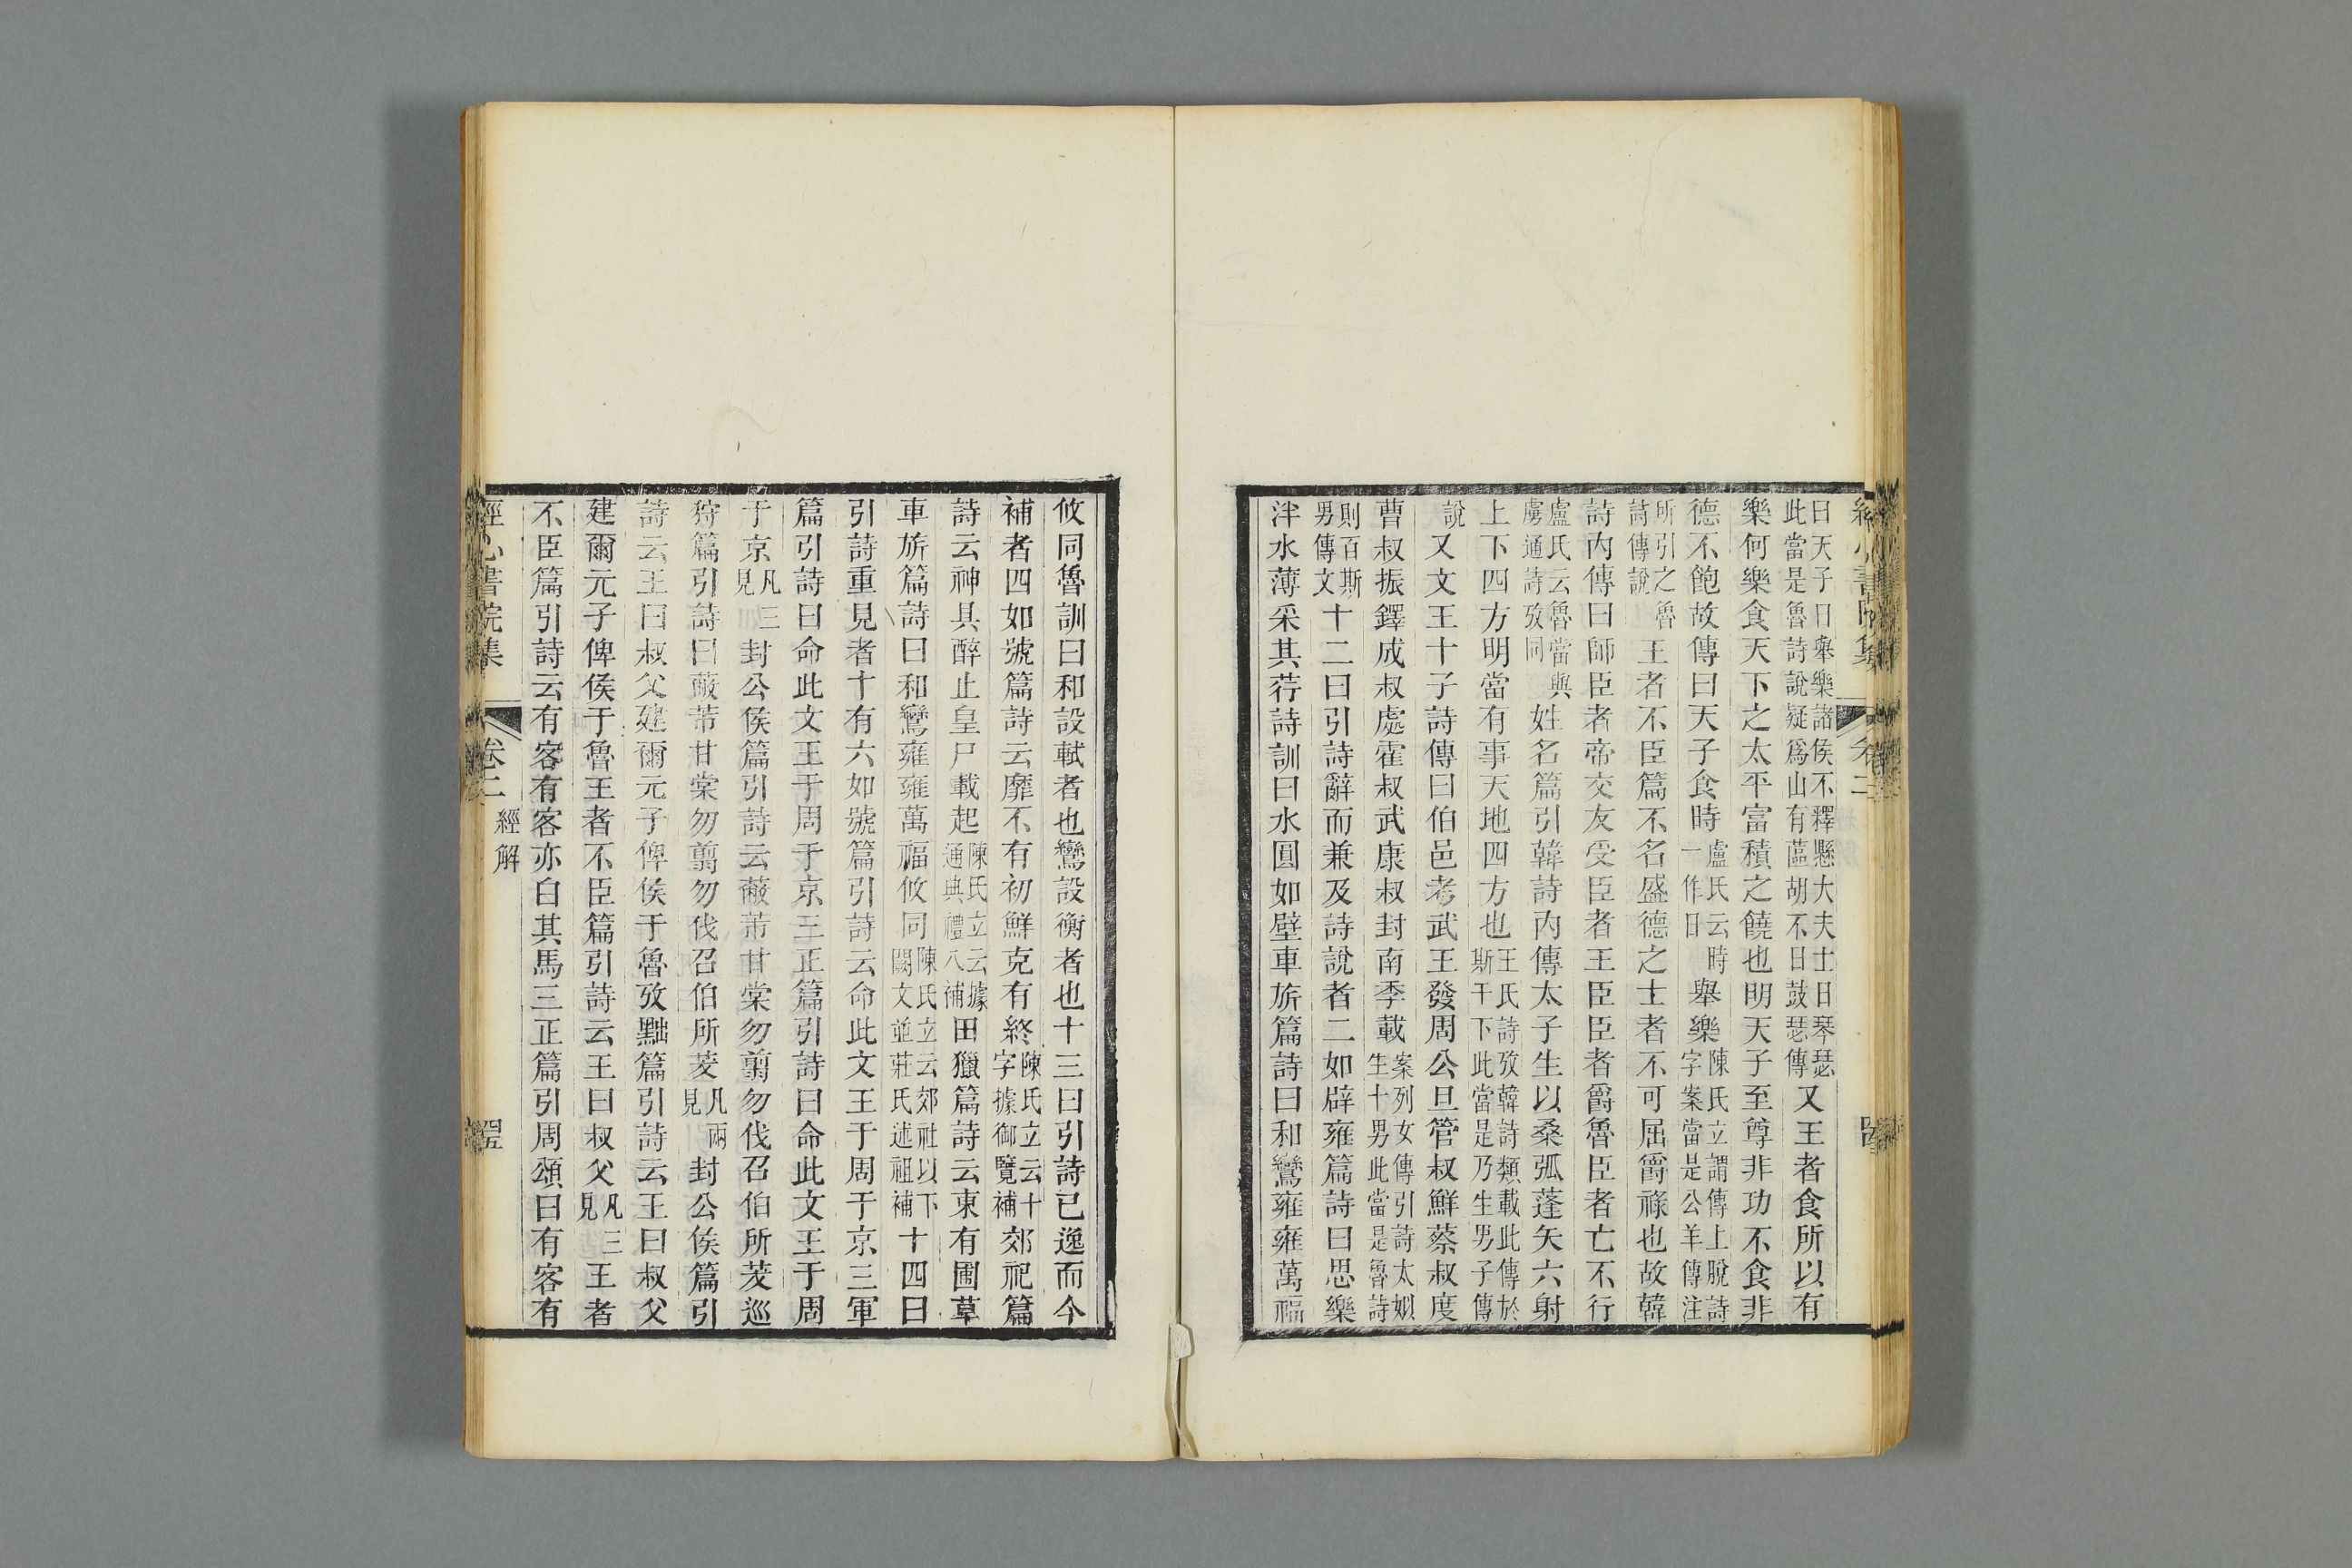 曰天子日舉樂諸侯不釋懸大夫士日琴瑟
此當是魯詩說疑爲山有蓲胡不日鼓瑟傳
又王者食所以有
樂何樂食天下之太平富積之饒也明天子至尊非功不食非
德不飽故傳曰天子食時
盧氏云時
一作日
舉樂
陳氏立謂傳上脫詩
字案當是公羊傳注
所引之魯
詩傳說
王者不臣篇不名盛德之士者不可屈爵祿也故韓
詩內傳曰師臣者帝交友受臣者王臣臣者爵魯臣者亡不行
盧氏云魯當與
虜通詩攷同
姓名篇引韓詩內傳太子生以桑弧蓬矢六射
上下四方明當有事天地四方也
王氏詩攷韓詩類載此傳於
斯干下此當是乃生男子傳
說
又文王十子詩傳曰伯邑考武王發周公旦管叔鮮蔡叔度
曹叔振鐸成叔處霍叔武康叔封南季載
案列女傳引詩太姒
生十男此當是魯詩
則百斯
男傳文
十二曰引詩辭而兼及詩說者二如辟雍篇詩曰思樂
泮水薄采其荇詩訓曰水圓如壁車旂篇詩曰和鸞雍雍萬福
攸同魯訓曰和設軾者也鸞設衡者也十三曰引詩已逸而今
補者四如號篇詩云靡不有初鮮克有終
陳氏立云十
字據御覽補
郊祀篇
詩云神具醉止皇尸載起
陳氏立云據
通典禮八補
田獵篇詩云東有圃草
車旂篇詩曰和鸞雍雍萬福攸同
陳氏立云郊社以下
闕文並莊氏述祖補
十四曰
引詩重見者十有六如號篇引詩云命此文王于周于京三軍
篇引詩曰命此文王于周于京三正篇引詩曰命此文王于周
于京
凡三
見
封公侯篇引詩云蔽芾甘棠勿翦勿伐召伯所茇巡
狩篇引詩曰蔽芾甘棠勿翦勿伐召伯所茇
凡兩
見
封公侯篇引
詩云王曰叔父建爾元子俾侯于魯攷黜篇引詩云王曰叔父
建爾元子俾侯于魯王者不臣篇引詩云王曰叔父
凡三
見
王者
不臣篇引詩云有客有客亦白其馬三正篇引周頌曰有客有
經心書院集
卷二
經解